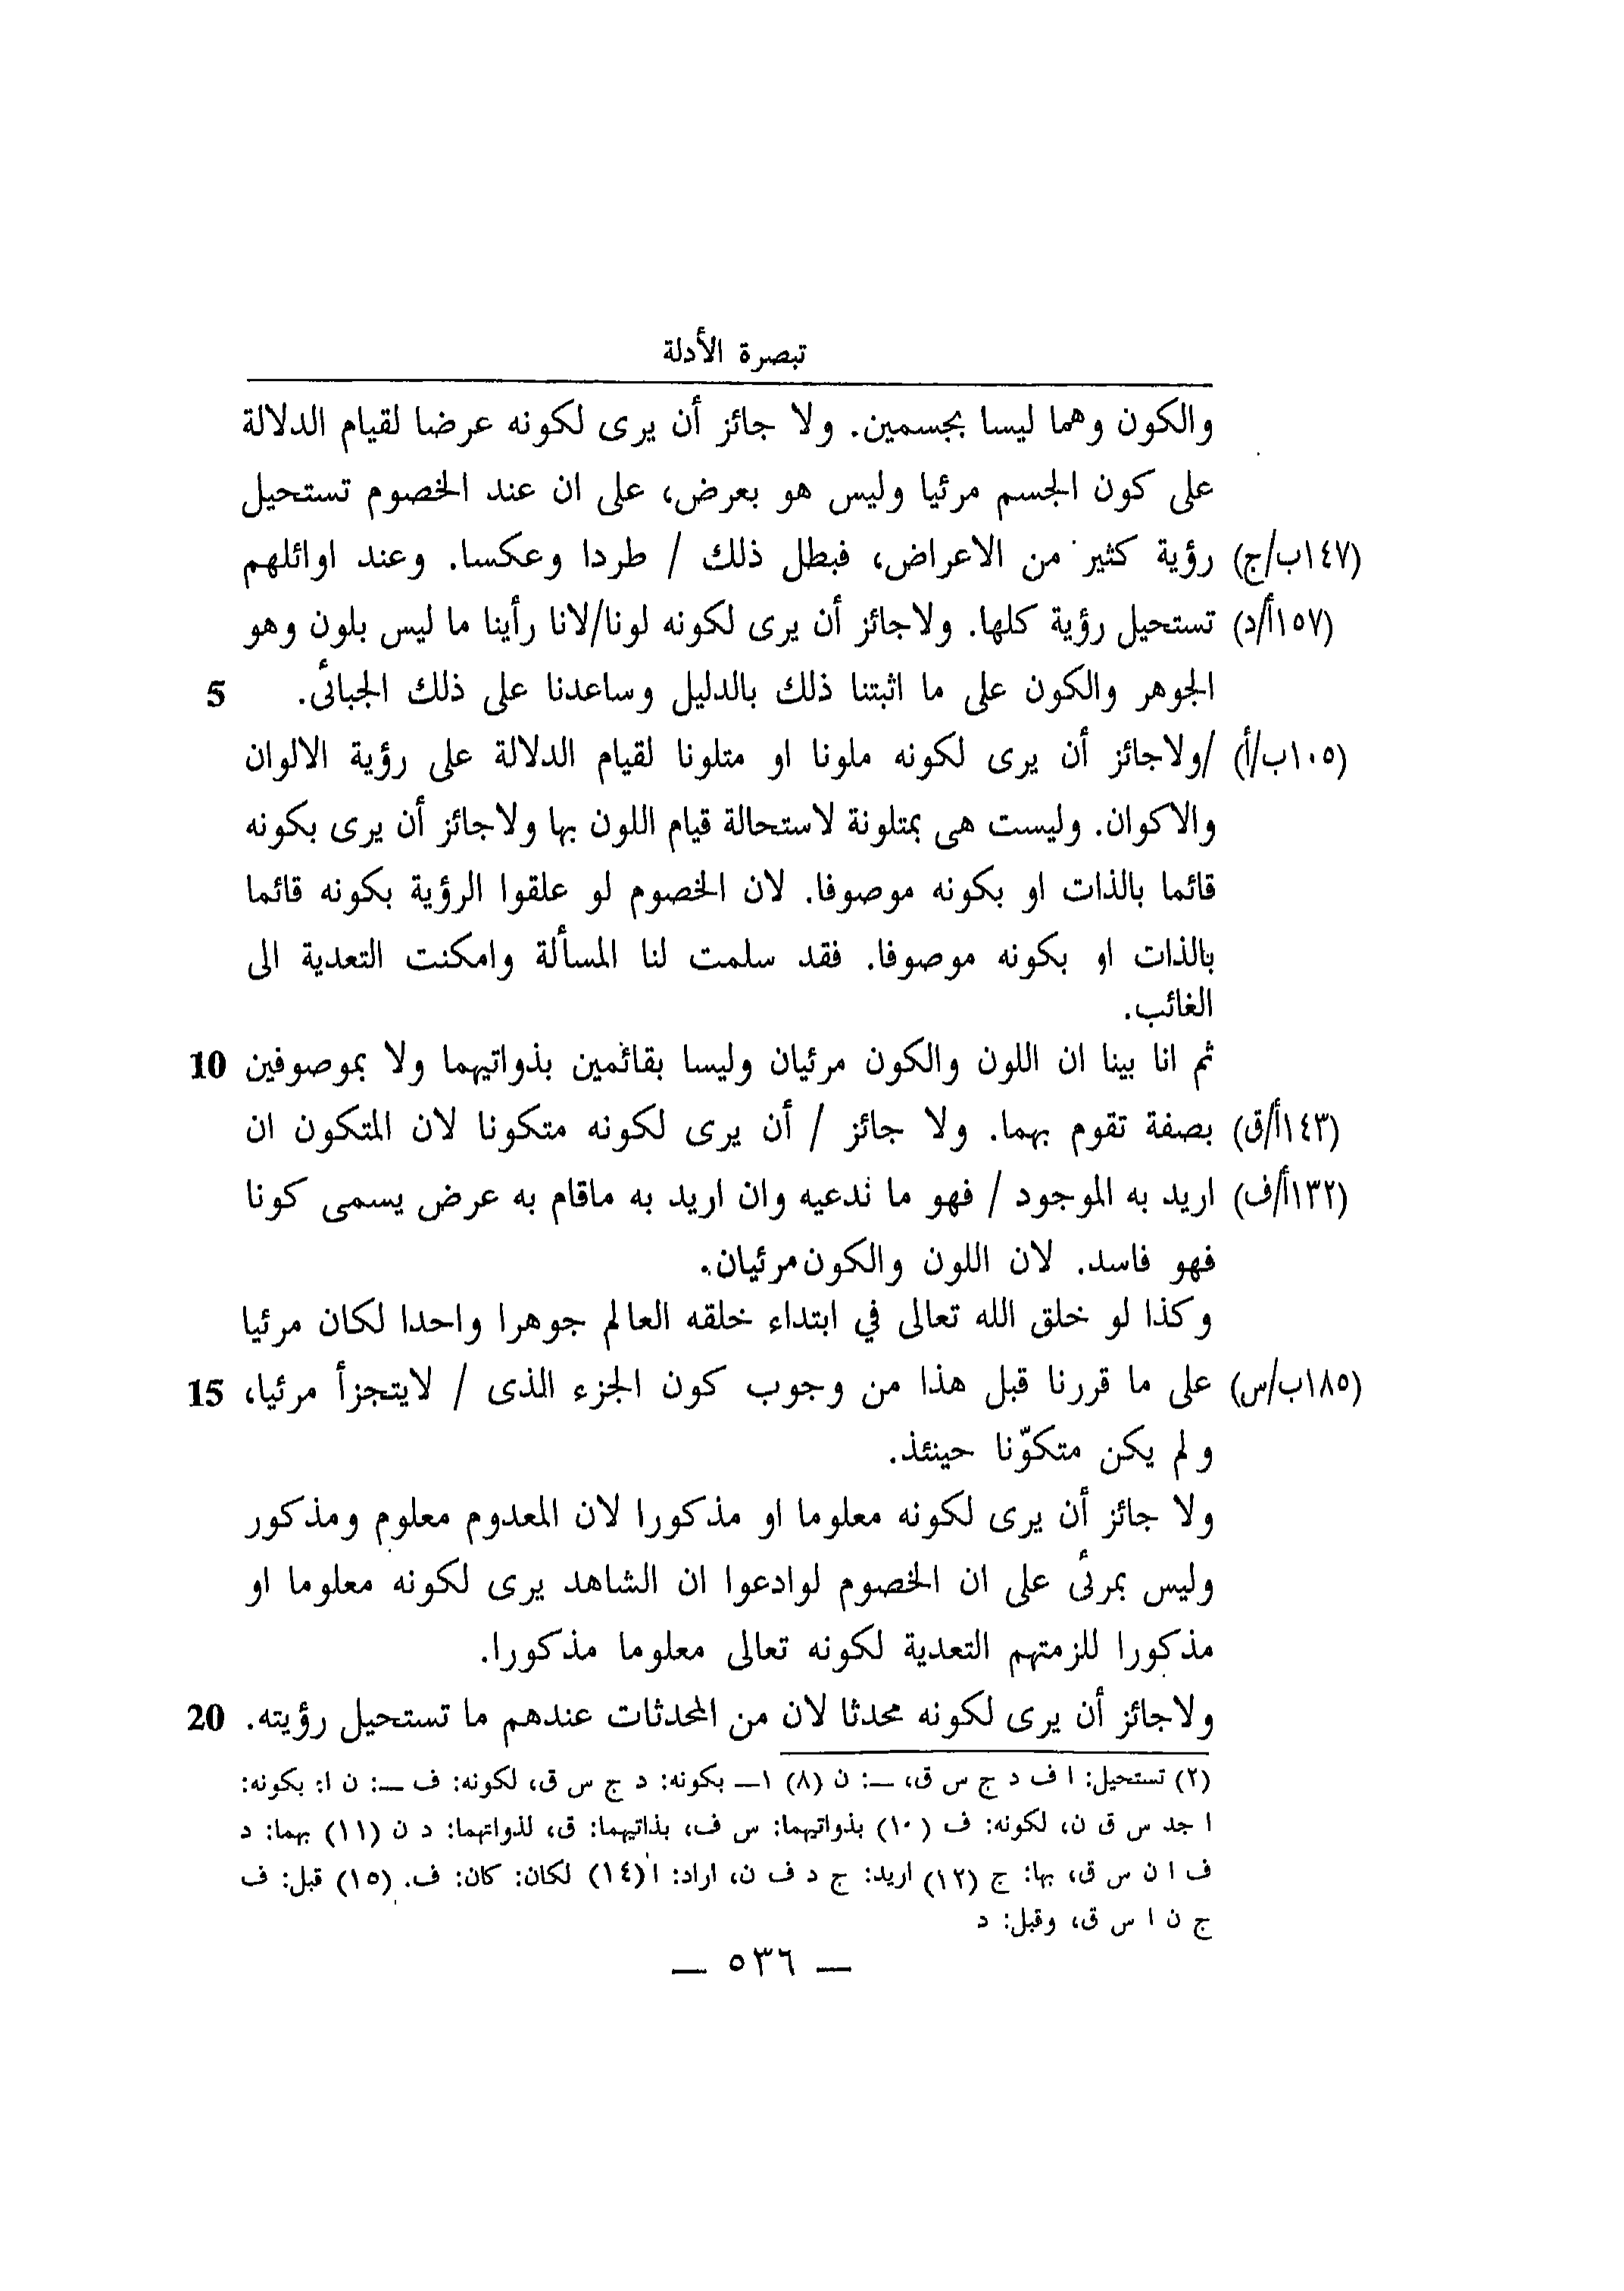 تبصرة الأدلة
والكون وهما ليسا بجسمين. ولا جائز أن يرى لكونه عرضا لقيام الدلالة
على كون الجسم مرئيا وليس هو بعرض، على ان عند الخصوم تستحيل
(١٤٧ب/ج) رؤية كثير من الاعراض، فبطل ذلك / طردا وعكسا. وعند اوائلهم
(١٥٧أ/د) تستحيل رؤية كلها. ولاجائز أن يرى لكونه لونا/لانا رأينا ما ليس بلون وهو
الجوهر والكون على ما اثبتنا ذلك بالدليل وساعدنا على ذلك الجبائى. 5
(١٠٥ب/أ) /ولاجائز أن يرى لكونه ملونا او متلونا لقيام الدلالة على رؤية الالوان
والاكوان. وليست هى بمتلونة لاستحالة قيام اللون بها ولاجائز أن يرى بكونه
قائما بالذات او بكونه موصوفا. لان الخصوم لو علقوا الرؤية بكونه قائما
بالذات او بكونه موصوفا. فقد سلمت لنا المسألة وامكنت التعدية الى
الغائب.
ثم انا بينا ان اللون والكون مرئيان وليسا بقائمين بذواتيهما ولا بموصوفين 10
(١٤٣أ/ق) بصفة تقوم بهما. ولا جائز / أن يرى لكونه متكونا لان المتكون ان
(١٣٢أ/ف) اريد به الموجود / فهو ما ندعيه وان اريد به ماقام به عرض يسمى كونا
فهو فاسد. لان اللون والكون مرئيان.
وكذا لو خلق الله تعالى في ابتداء خلقه العالم جوهرا واحدا لكان مرئيا
(١٨٥ب/س) على ما قررنا قبل هذا من وجوب كون الجزء الذى / لايتجزأ مرئيا، 15
و لم يكن متكوّنا حينئذ.
ولا جائز أن يرى لكونه معلوما او مذكورا لان المعدوم معلوم ومذكور
وليس بمرئى على ان الخصوم لوادعوا ان الشاهد يرى لكونه معلوما او
مذكورا للزمتهم التعدية لكونه تعالى معلوما مذكورا.
ولاجائز أن يرى لكونه محدثا لان من المحدثات عندهم ما تستحيل رؤيته. 20
(٢) تستحيل: ا ف د ج س ق، ـ: ن (٨) ١ـ بكونه: د ج س ق، لكونه: ف ـ: ن ا: بكونه:
ا جد س ق ن، لكونه: ف (١٠) بذواتيهما: س ف، بذاتيهما: ق، لذواتهما: د ن (١١) بهما: د
ف ا ن س ق، بها: ج (١٢) اريد: ج د ف ن، اراد: ا (١٤) لكان: كان: ف. (١٥) قبل: ف
ج ن ا س ق، وقبل: د
ـ ٥٣٦ ـ